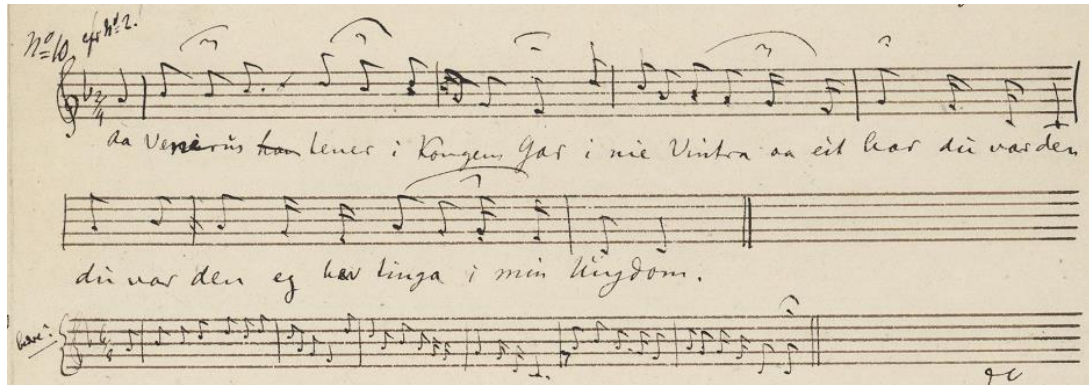 No 10
aa Venerus han tener i Kongens Gar i nie Vintra aa eit har du var den
du var den eg har tinga i min Ungdom.